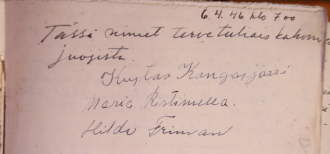 6.4.46 klo 7 00
Tässä nimet tervetuliais kahvin
juojista.
Kustas Kangasjärvi
Maria Ristimella.
Hilda Friman